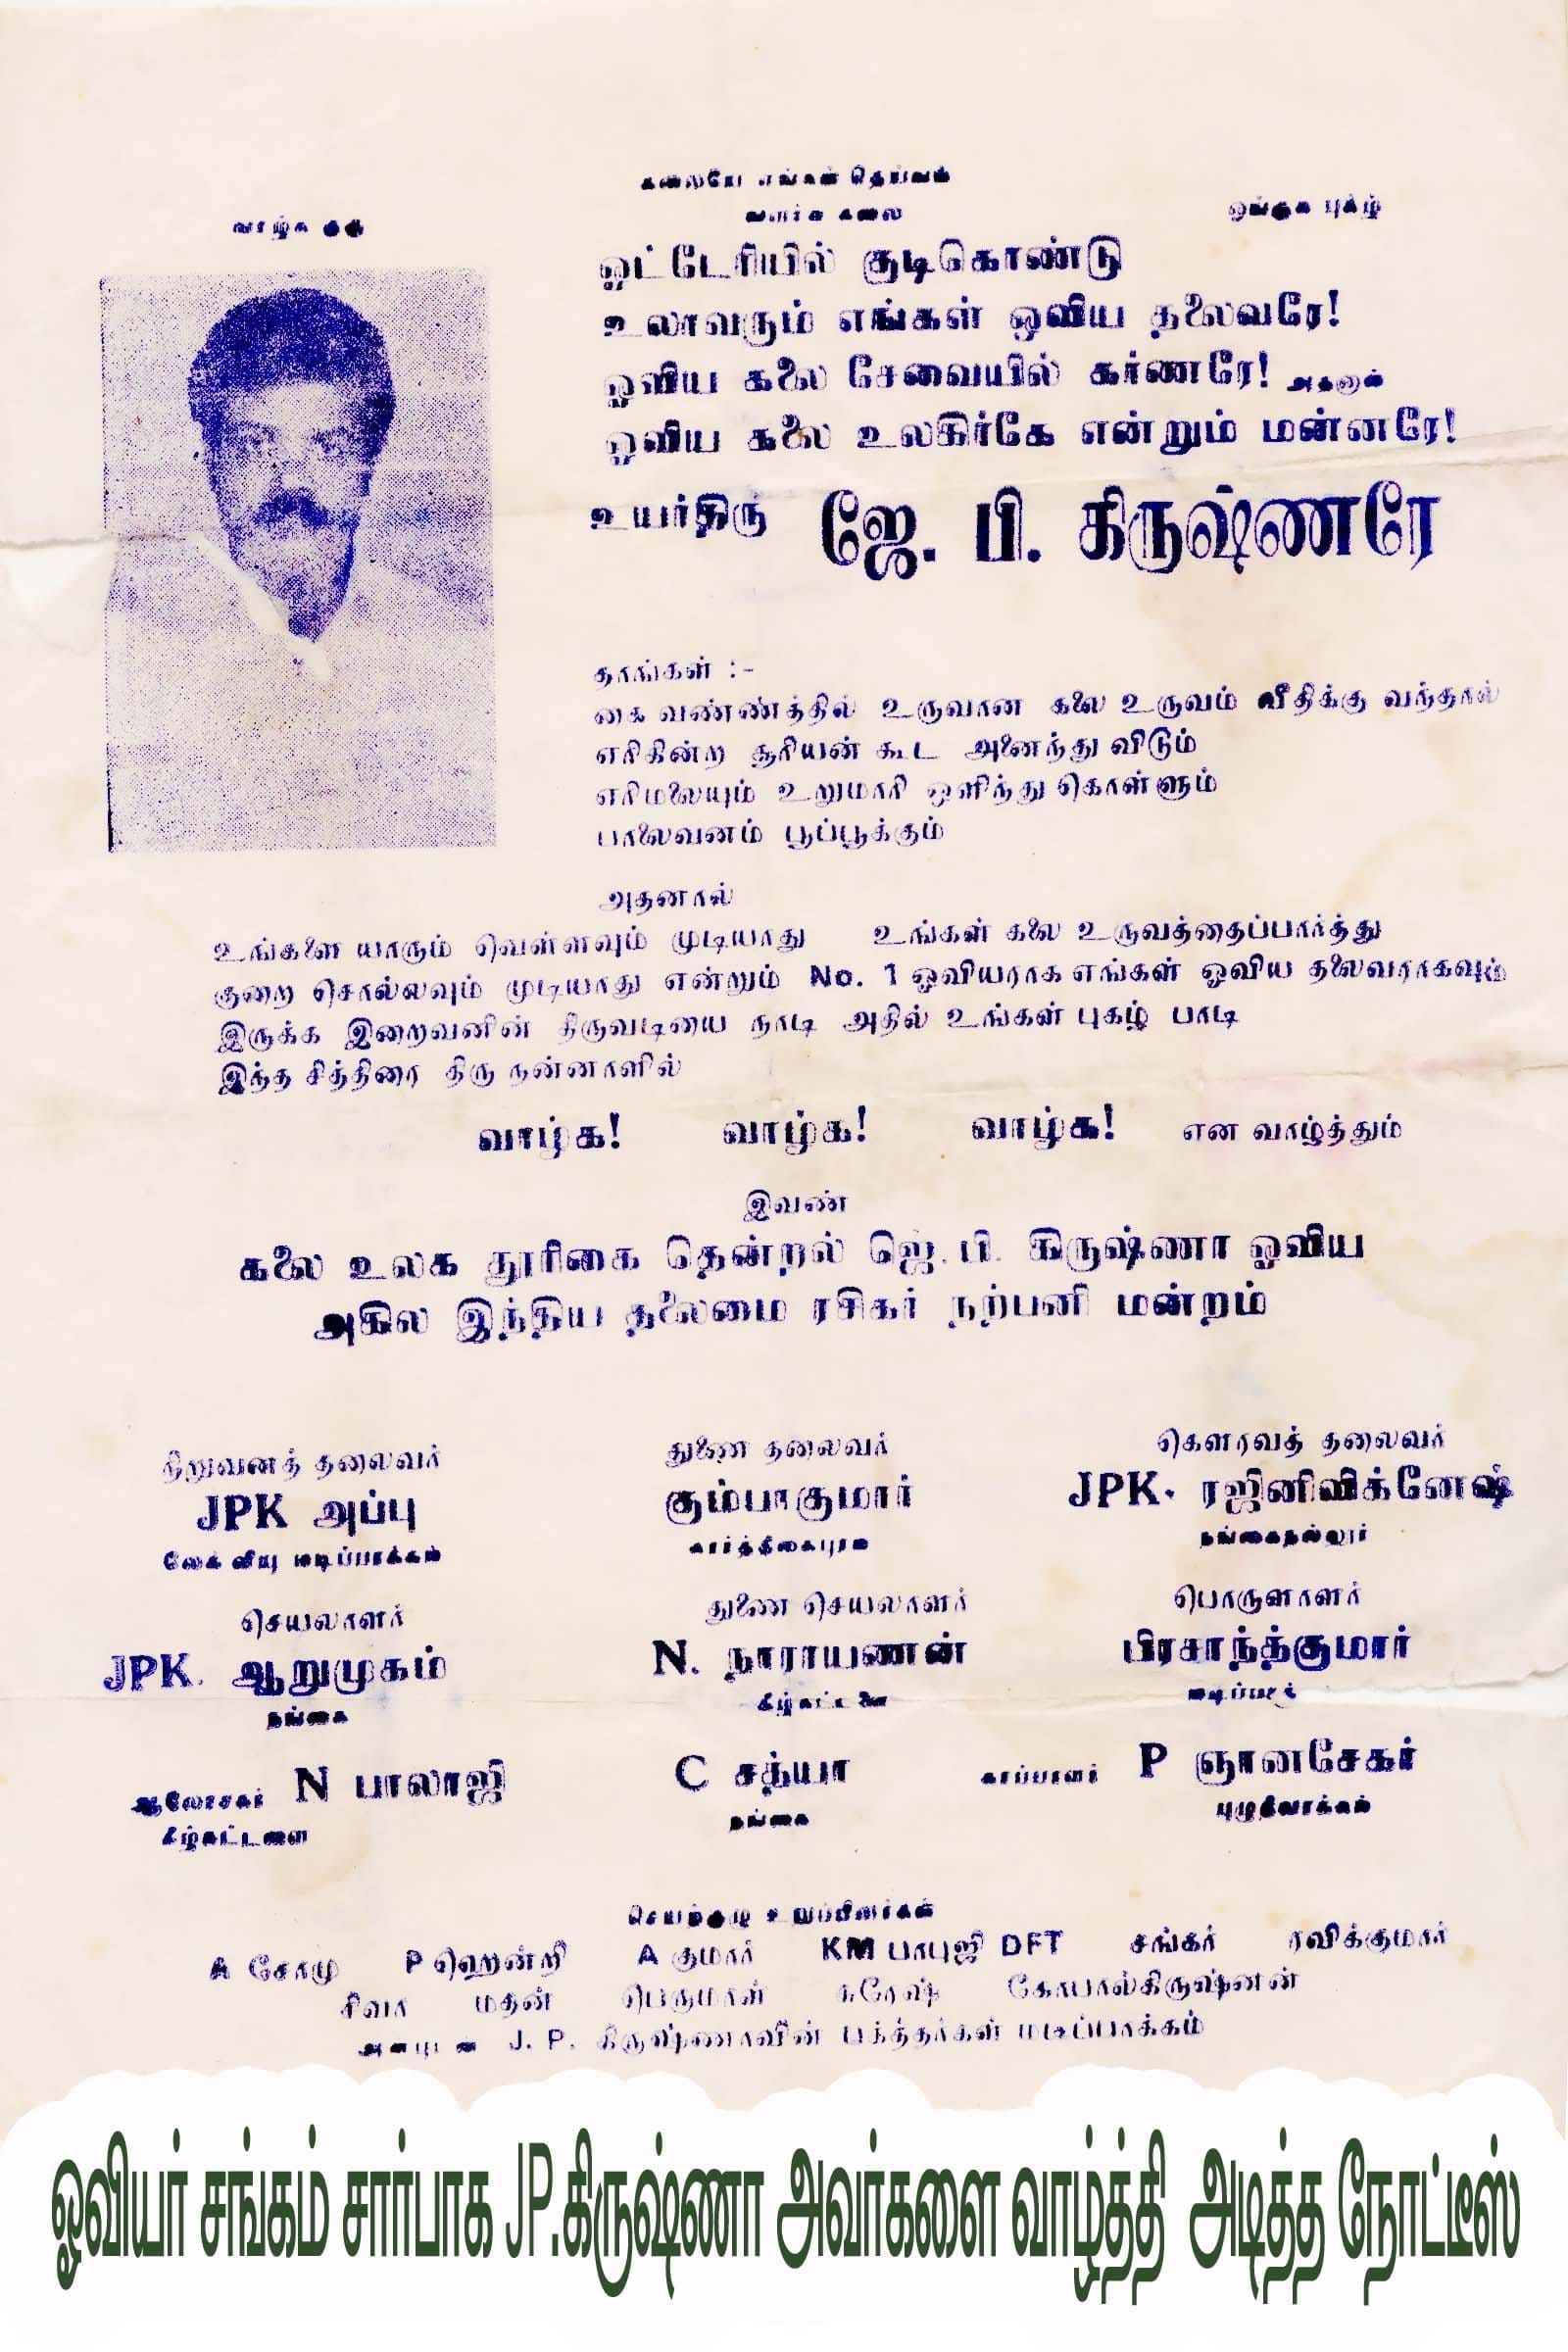 கலையே எங்கள் தெய்வம்
வாழ்க குரு
வளர்க கலை
ஓங்குக புகழ்
ஓட்டேரியில் குடிகொண்டு
உலாவரும் எங்கள் ஓவிய தலைவரே!
ஓவிய கலை சேவையில் கர்ணரே!
ஓவிய கலை உலகிற்கே என்றும் மன்னரே!
உயர்திரு ஜே. பி. கிருஷ்ணரே
தாங்கள் :-
கை வண்ணத்தில் உருவான கலை உருவம் வீதிக்கு வந்தால்
எரிகின்ற சூரியன் கூட அனைந்து விடும்
எரிமலையும் உறுமாரி ஒளிந்து கொள்ளும்
பாலைவனம் பூப்பூக்கும்
அதனால்
உங்களை யாரும் வெள்ளவும் முடியாது உங்கள் கலை உருவத்தைப்பார்த்து
குறை சொல்லவும் முடியாது என்றும் No. 1 ஓவியராக எங்கள் ஓவிய தலைவராகவும்
இருக்க இறைவனின் திருவடியை நாடி அதில் உங்கள் புகழ் பாடி
இந்த சித்திரை திரு நன்னாளில்
வாழ்க! வாழ்க! வாழ்க! என வாழ்த்தும்
இவண்
கலை உலக தூரிகை தென்றல் ஜெ. பி. கிருஷ்ணா ஓவிய
அகில இந்திய தலைமை ரசிகர் நற்பனி மன்றம்
நிறுவனத் தலைவர் துணை தலைவர் கௌரவத் தலைவர்
JPK அப்பு கும்பாகுமார் JPK. ரஜினிவிக்னேஷ்
லேக் வியு மடிப்பாக்கம் கார்த்திகைபுரம் நங்கைநல்லூர்
செயலாளர் துணை செயலாளர் பொருளாளர்
JPK. ஆறுமுகம் N. நாராயணன் பிரசாந்த்குமார்
நங்கை கீழ்கட்டளை மடிப்பாக்
ஆலோசகர் N பாலாஜி C சத்யா காப்பாளர் P ஞானசேகர்
கீழ்கட்டளை நங்கை புழுதிவாக்கம்
செயற்குழு உறுப்பினர்கள்
A சோமு P ஹென்றி A குமார் KM பாபுஜி DFT சங்கர் ரவிக்குமார்
சிவா மதன் பெருமாள் சுரேஷ் கோபால்கிருஷ்ணன்
J. P. கிருஷ்ணாவின் பக்த்தர்கள் மடிப்பாக்கம்
ஓவியர் சங்கம் சார்பாக JP.கிருஷ்ணா அவர்களை வாழ்த்தி அடித்த நோட்டீஸ்